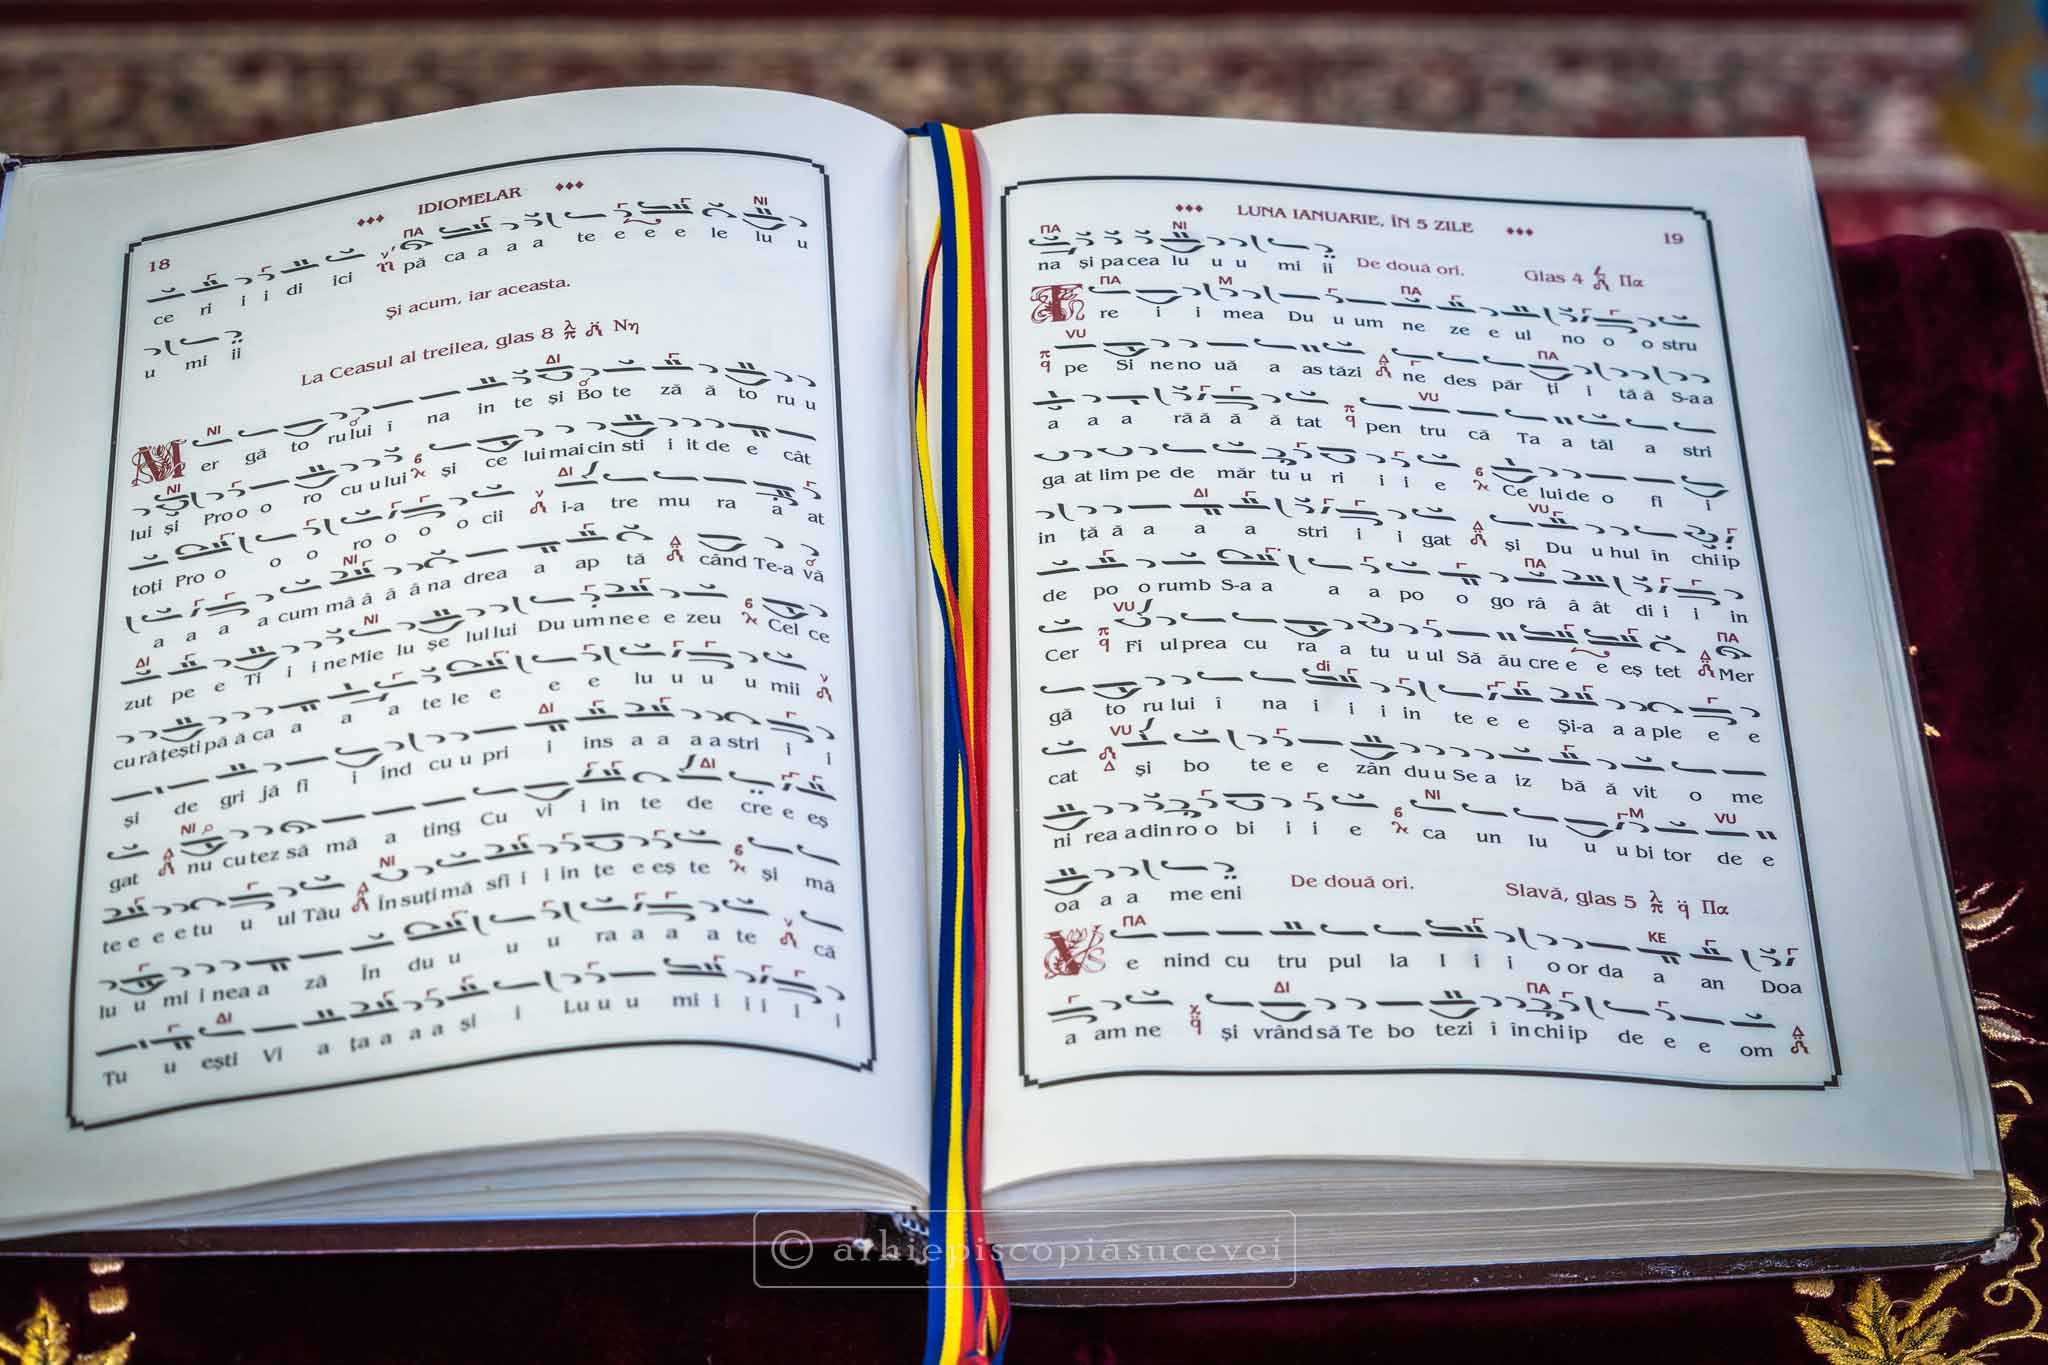 18
IDIOMELAR
ce ri i i di ici pă ca a a a te e e e le lu u
u mi ii
Și acum, iar aceasta.
La Ceasul al treilea, glas 8 Νη
M er gă to ru lui î na in te și Bo te ză ă to ru u
lui și Pro o o ro cu u lui și ce lui mai cin sti i it de e cât
toți Pro o o o ro o o o cii i-a tre mu ra a at
a a a a cum mâ â â â na drea a ap tă când Te-a vă
zut pe e Ti i i ne Mie lu șe lul lui Du um ne e e zeu Cel ce
cu ră țești pă ă ca a a a te le e e e lu u u u mii
și de gri jă fi i ind cu u pri i ins a a a a stri i i
gat nu cu tez să mă a ting Cu vi i in te de cre e eș
te e e e tu u ul Tău În su ți mă sfi i i in țe e eș te și mă
lu u mi i nea a ză În du u u u ra a a a te că
Tu u ești Vi a ța a a a și i Lu u u mi i i i i i
LUNA IANUARIE, ÎN 5 ZILE
19
na și pa cea lu u u mi ii De două ori. Glas 4 Πα
T re i i mea Du u um ne ze e ul no o o stru
pe Si ne no uă a as tăzi ne des păr ți i tă ă S-a a
a a a ră ă ă ă tat pen tru că Ta a tăl a stri
ga at lim pe de măr tu u ri i i e Ce lui de o fi i
in ță ă a a a stri i i gat și Du u hul în chi ip
de po o rumb S-a a a a po o go râ â ât di i i in
Cer Fi ul prea cu ra a tu u ul Să ău cre e e eș tet Mer
gă to ru lui î na i i i in te e e Și-a a a ple e e
cat și bo te e e zân du u Se a iz bă ă vit o me
ni rea a din ro o bi i i e ca un Iu u u bi tor de e
oa a a me eni De două ori. Slavă, glas 5 Πα
V e nind cu tru pul la I i i o or da a an Doa
a am ne și vrând să Te bo tezi î în chi ip de e e om
© arhiepiscopiasucevei